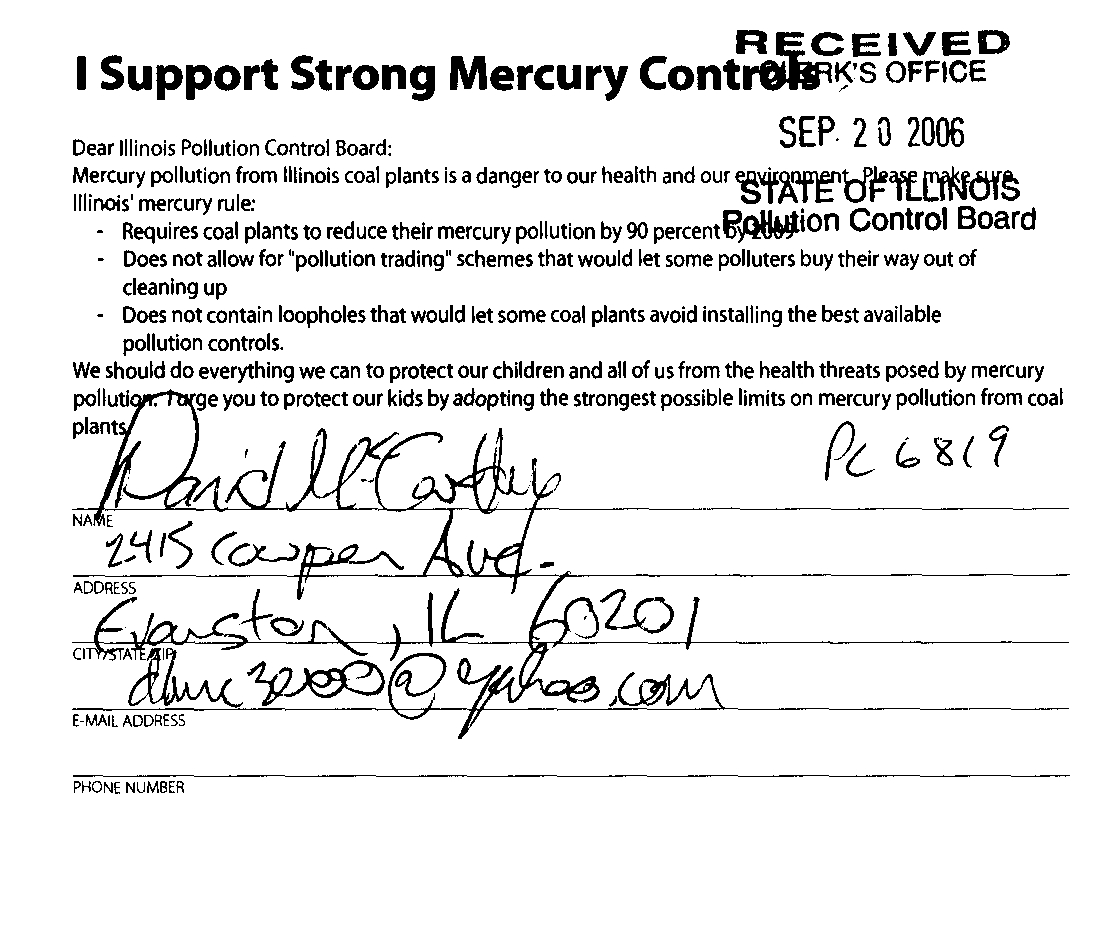 RECEIVED
CLERK'S OFFICE
I Support Strong Mercury Controls
SEP 20 2006
STATE OF ILLINOIS
Pollution Control Board
Dear Illinois Pollution Control Board:
Mercury pollution from Illinois coal plants is a danger to our health and our environment. Please make sure
Illinois' mercury rule:
- Requires coal plants to reduce their mercury pollution by 90 percent by 2009
- Does not allow for "pollution trading" schemes that would let some polluters buy their way out of
cleaning up
- Does not contain loopholes that would let some coal plants avoid installing the best available
pollution controls.
We should do everything we can to protect our children and all of us from the health threats posed by mercury
pollution. I urge you to protect our kids by adopting the strongest possible limits on mercury pollution from coal
plants.
PC 6819
David McCarthy
NAME
2415 Cowper Ave.
ADDRESS
Evanston, IL 60201
CITY/STATE/ZIP
@yahoo.com
E-MAIL ADDRESS
PHONE NUMBER